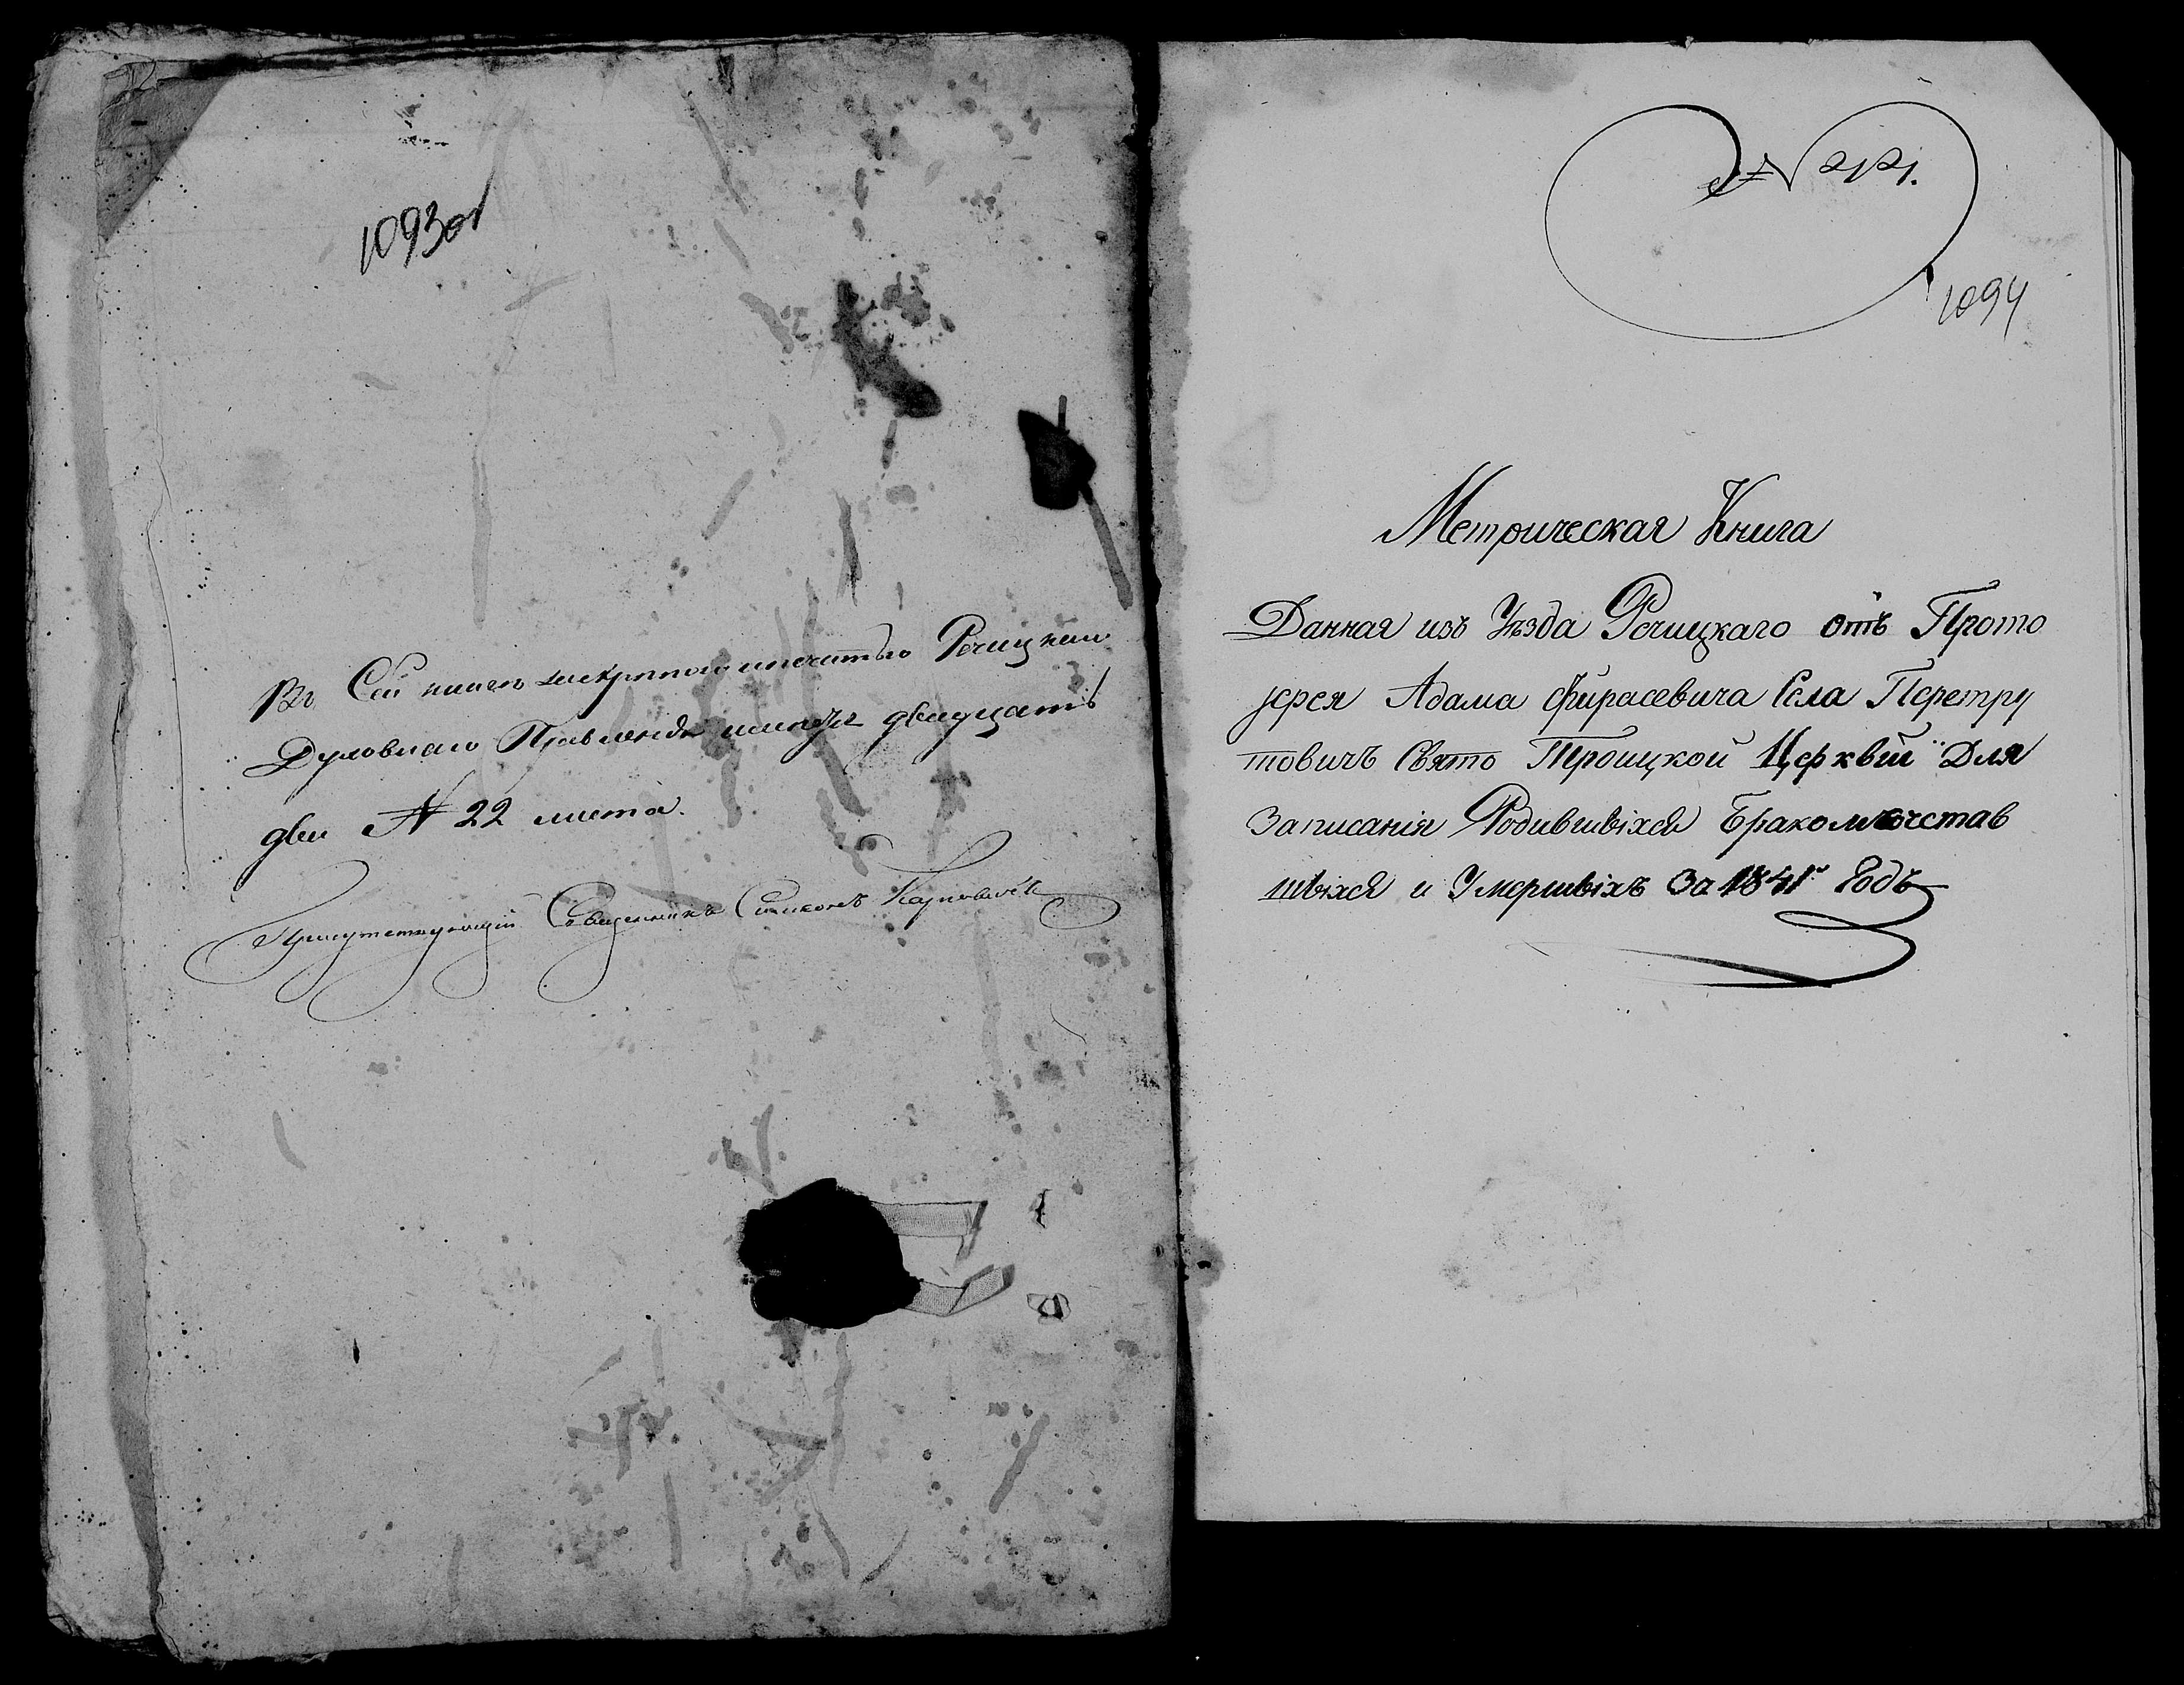 1093 об
Въ Сей книге закрепленной печатью Речицкаго
Духовнаго Правленія листовъ двадцать
два № 22 листа.
Присутствующій Священникъ Симеонъ Карповичъ
№
1094
Метрическая Книга
Данная изъ Уѣзда Речицкаго отъ Прото
іерея Адама Фирасевича Села Перетру
товичъ Свято Троицкой Церквіи Для
Записанія Родившвіхся Бракомъ
швіхся и Умершвіхъ За 1841й Годъ